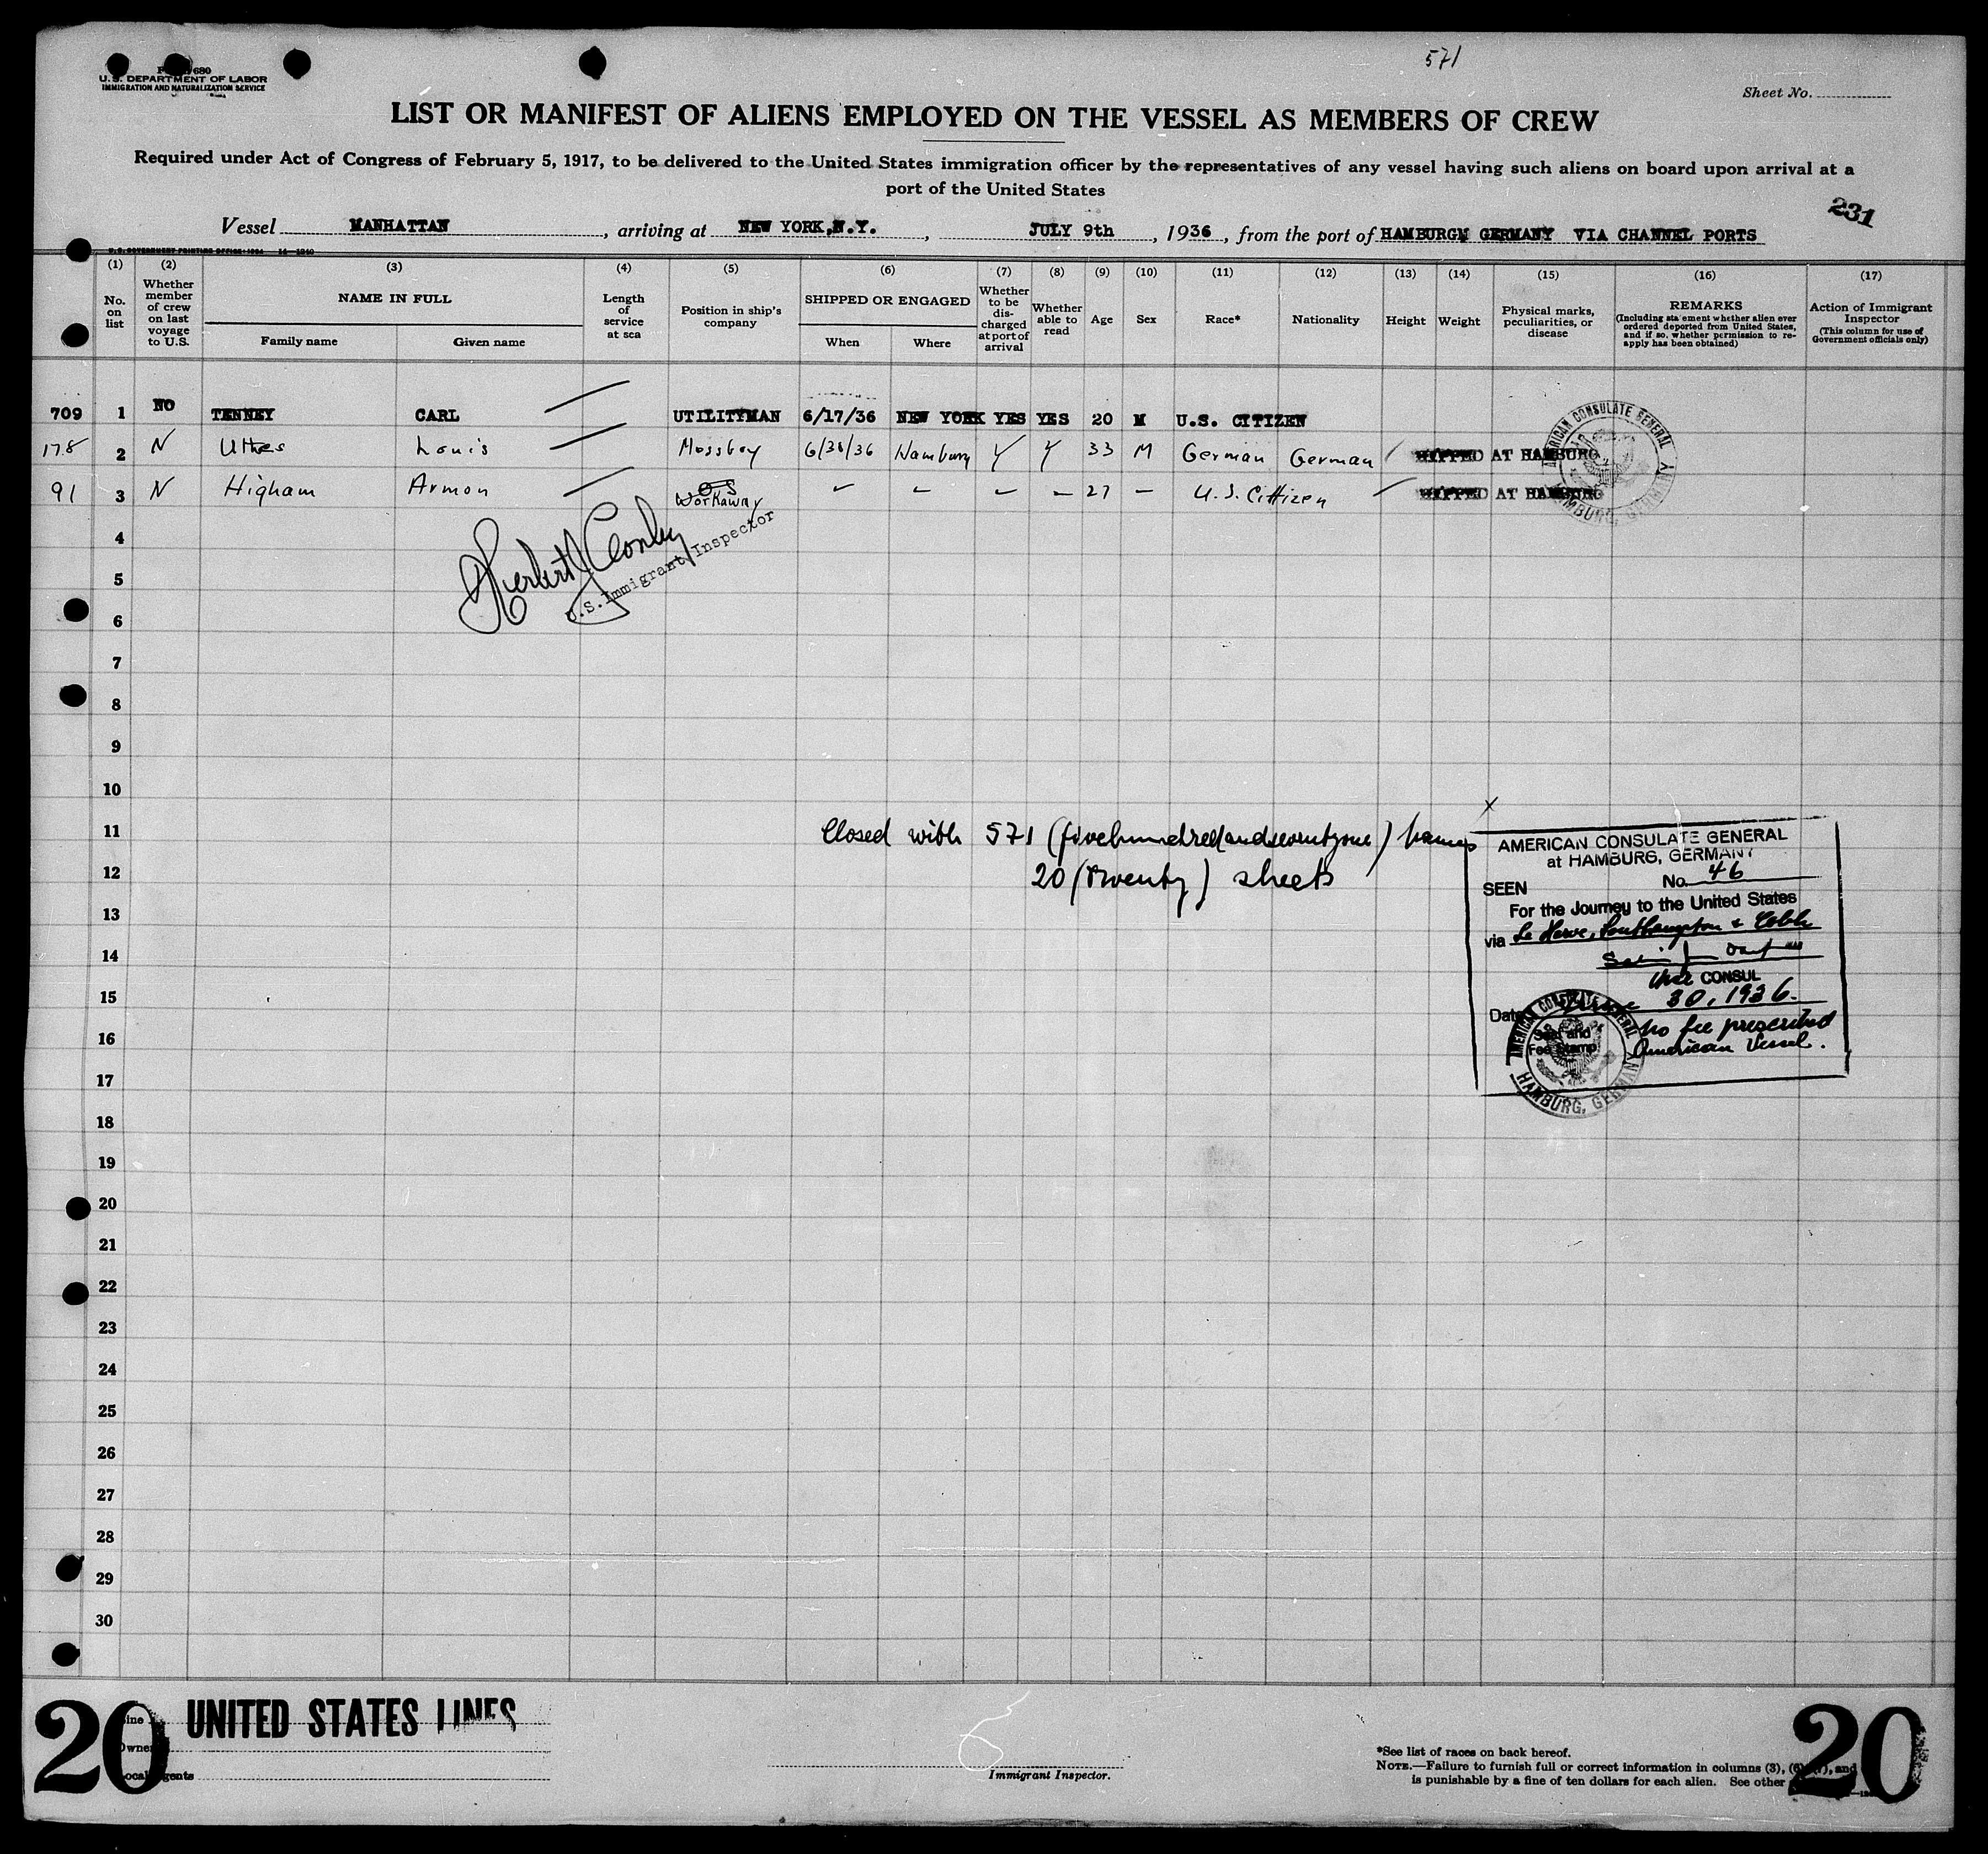 571
Form 680
U.S. DEPARTMENT OF LABOR
IMMIGRATION AND NATURALIZATION SERVICE
Sheet No.
LIST OR MANIFEST OF ALIENS EMPLOYED ON THE VESSEL AS MEMBERS OF CREW
Required under Act of Congress of February 5, 1917, to be delivered to the United States immigration officer by the representatives of any vessel having such aliens on board upon arrival at a
port of the United States
231
Vessel MANHATTAN, arriving at NEW YORK,N.Y., JULY 9th, 1936, from the port of HAMBURGM GERMANY VIA CHANNEL PORTS
U.S. GOVERNMENT PRINTING OFFICE
(1) (2) (3) (4) (5) (6) (7) (8) (9) (10) (11) (12) (13) (14) (15) (16) (17)
No. on list
Whether member of crew on last voyage to U.S.
NAME IN FULL
Family name
Given name
Length of service at sea
Position in ship's company
SHIPPED OR ENGAGED
When
Where
Whether to be discharged at port of arrival
Whether able to read
Age
Sex
Race*
Nationality
Height
Weight
Physical marks, peculiarities, or disease
REMARKS
(Including statement whether alien ever ordered deported from United States, and if so, whether permission to re-apply has been obtained)
Action of Immigrant Inspector
(This column for use of Government officials only)
709 1 NO TENNEY CARL UTILITYMAN 6/17/36 NEW YORK YES YES 20 M U.S. CITIZEN
178 2 N Uthes Louis Messboy 6/30/36 Hamburg Y Y 33 M German German SHIPPED AT HAMBURG
91 3 N Higham Armon OS Workaway 27 U.S. Citizen SHIPPED AT HAMBURG
AMERICAN CONSULATE GENERAL HAMBURG, GERMANY
4
Herbert J Conley
U.S. Immigrant Inspector
5
6
7
8
9
10
11
Closed with 571 (fivehundredandseventyone) names
12
20 (twenty) sheets
13
14
15
16
17
18
19
20
21
22
23
24
25
26
27
28
29
30
AMERICAN CONSULATE GENERAL
at HAMBURG, GERMANY
SEEN No. 46
For the Journey to the United States
via Le Havre, Southampton & Cobh
Vice CONSUL
Date June 30, 1936.
Seal and
Fee Stamp
No fee prescribed
American Vessel.
AMERICAN CONSULATE GENERAL HAMBURG, GERMANY
20
Line UNITED STATES LINES
Owners
Local Agents
Immigrant Inspector.
*See list of races on back hereof.
NOTE.—Failure to furnish full or correct information in columns (3), (6), (7), and
is punishable by a fine of ten dollars for each alien. See other
20